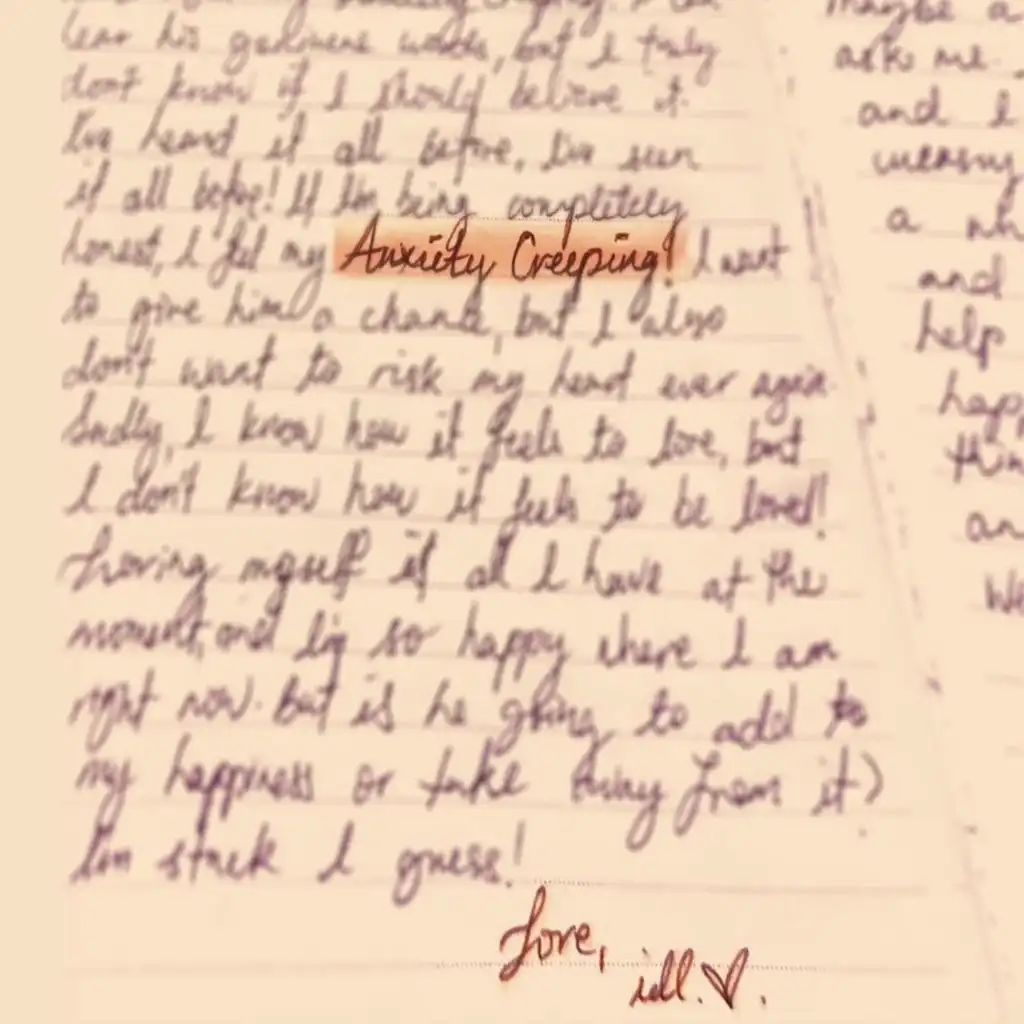 hear his genuine words, but I truly
don't know if I should believe it.
I've heard it all before, I've seen
it all before! If I'm being completely
honest, I feel my Anxiety Creeping! I want
to give him a chance, but I also
don't want to risk my heart ever again.
Sadly, I know how it feels to love, but
I don't know how it feels to be loved!
Loving myself is all I have at the
moment, and I'm so happy where I am
right now. but is he going to add to
my happiness or take away from it?
I'm stuck I guess!
Love,
ill. ♡.
maybe a
ask me.
and I
a
and
help